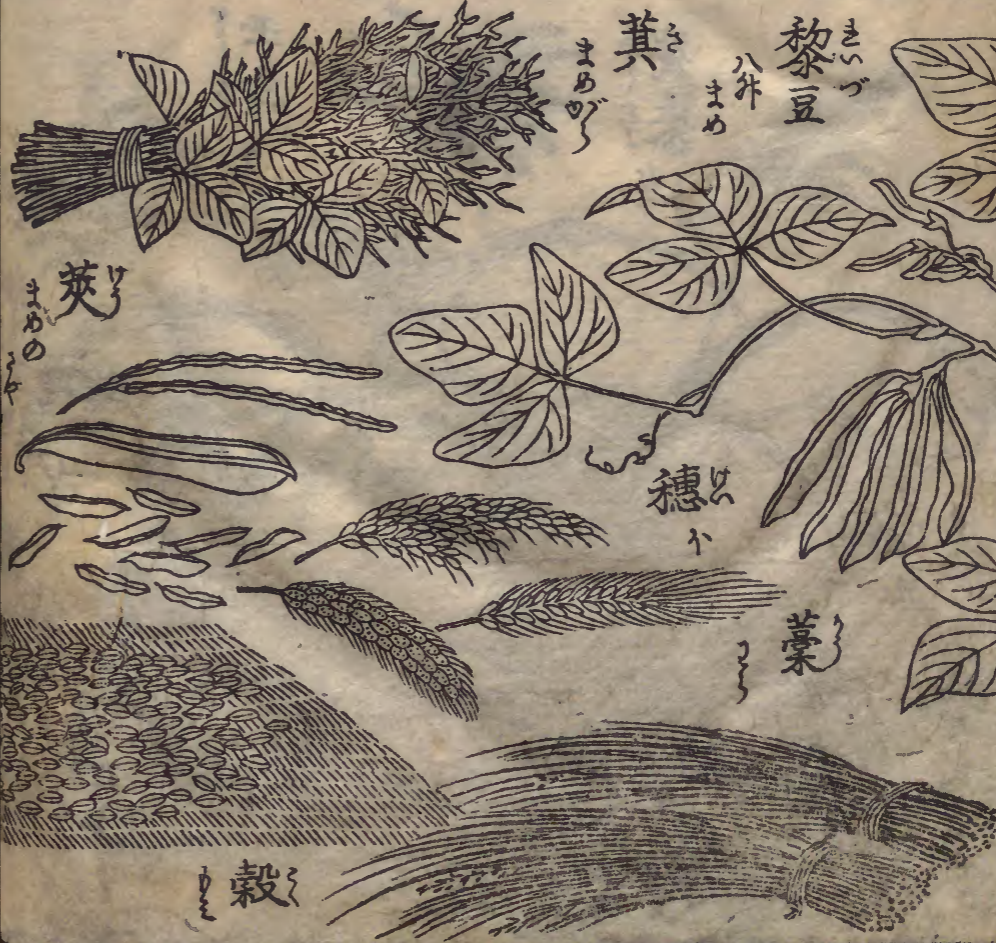 黎豆
れいづ
八升
まめ
萁
き
まめがら
莢
けう
まめの
さや
穗
けい
ほ
藁
かう
わら
穀
こく
もみ